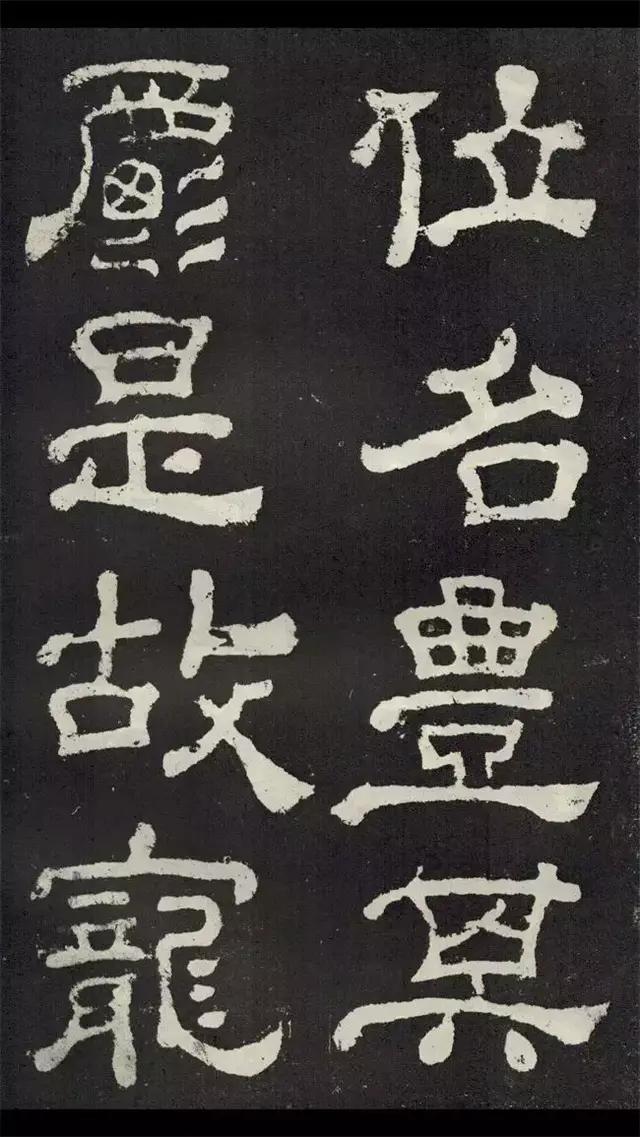 位名豊其
爵是故寵